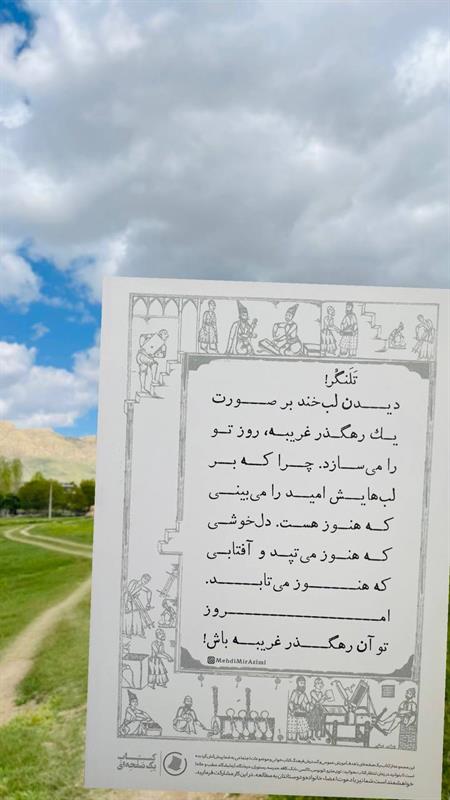 تَلَنگُر!
دیدن لب‌خند بر صورت
یك رهگذر غریبه، روز تو
را می‌سازد. چرا که بر
لب‌هایش امید را می‌بینی
که هنوز هست. دل‌خوشی
که هنوز می‌تپد و آفتابی
که هنوز می‌تابد.
امروز
تو آن رهگذر غریبه باش!
MehdiMirAzimi
کتاب
یک صفحه‌ای